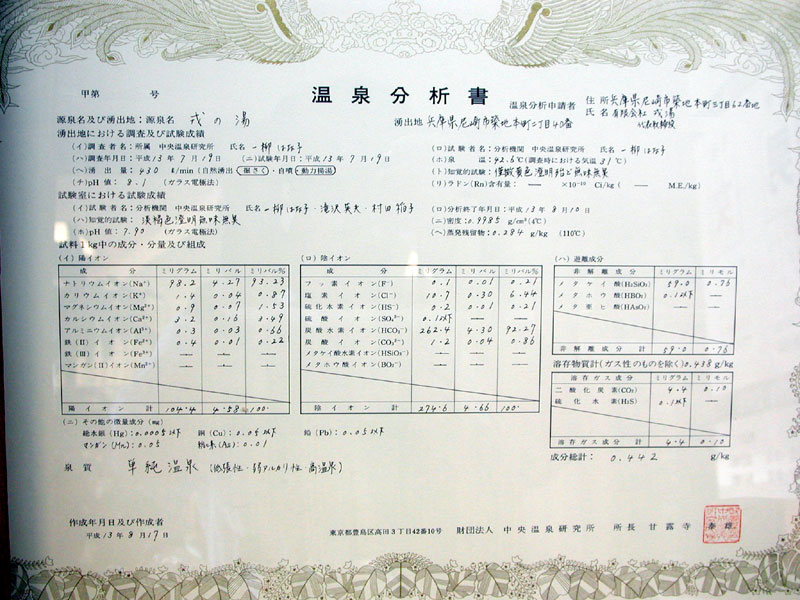 甲第　号
温泉分析書
温泉分析申請者 住所 兵庫県尼崎市築地本町三丁目62番地
氏名 有限会社 戎湯
代表取締役
源泉名及び湧出地：源泉名 戎の湯 湧出地 兵庫県尼崎市築地本町二丁目40番
湧出地における調査及び試験成績
(イ)調査者名：所属 中央温泉研究所 氏名 一柳 (ロ)試験者名：分析機関 中央温泉研究所 氏名 一柳
(ハ)調査年月日：平成13年7月19日 (ニ)試験年月日：平成13年7月19日 (ホ)泉温：42.6℃(調査時における気温31℃)
(ヘ)湧出量：430 ℓ/min (自然湧出・掘さく・自噴・動力揚湯) (ト)知覚的試験：微黄色澄明殆ど無味無臭
(チ)pH値：8.1 (ガラス電極法) (リ)ラドン(Rn)含有量：― ×10⁻¹⁰ Ci/kg ( ― M.E./kg)
試験室における試験成績
(イ)試験者名：分析機関 中央温泉研究所 氏名 一柳 ・滝沢英夫・村田 (ロ)分析終了年月日：平成13年8月10日
(ハ)知覚的試験：淡橘色澄明無味無臭 (ニ)密度：0.9985 g/cm³(4℃)
(ホ)pH値：7.90 (ガラス電極法) (ヘ)蒸発残留物：0.284 g/kg (110℃)
試料1kg中の成分・分量及び組成
(イ)陽イオン
成分 ミリグラム ミリバル ミリバル%
ナトリウムイオン(Na⁺) 98.2 4.27 93.23
カリウムイオン(K⁺) 1.4 0.04 0.87
マグネシウムイオン(Mg²⁺) 0.9 0.07 1.53
カルシウムイオン(Ca²⁺) 0.16 3.49
アルミニウムイオン(Al³⁺) 0.3 0.03 0.66
鉄(II)イオン(Fe²⁺) 0.4 0.01 0.22
鉄(III)イオン(Fe³⁺) ― ― ―
マンガン(II)イオン(Mn²⁺) ― ― ―
陽イオン計 104.4 4.58 100.
(ロ)陰イオン
成分 ミリグラム ミリバル ミリバル%
フッ素イオン(F⁻) 0.1 0.01 0.21
塩素イオン(Cl⁻) 10.7 0.30 6.44
硫化水素イオン(HS⁻) 0.2 0.01 0.21
硫酸イオン(SO₄²⁻) 0.1以下
炭酸水素イオン(HCO₃⁻) 262.4 4.30 92.27
炭酸イオン(CO₃²⁻) 1.2 0.04 0.86
メタケイ酸水素イオン(HSiO₃⁻) ― ― ―
メタホウ酸イオン(BO₂⁻) ― ― ―
陰イオン計 274.6 4.66 100.
(ハ)遊離成分
非解離成分 ミリグラム ミリモル
メタケイ酸(H₂SiO₃) 59.0 0.76
メタホウ酸(HBO₂) 0.1以下 ―
メタ亜ヒ酸(HAsO₂) ― ―
非解離成分計 59.0 0.76
溶存物質計(ガス性のものを除く)0.438 g/kg
溶存ガス成分 ミリグラム ミリモル
二酸化炭素(CO₂) 4.4 0.10
硫化水素(H₂S) 0.1以下 ―
溶存ガス成分計 4.4 0.10
成分総計： 0.442 g/kg
(ニ)その他の微量成分(mg)
総水銀(Hg)：0.0005以下 銅(Cu)：0.05以下 鉛(Pb)：0.05以下
マンガン(Mn)：0.05 総ヒ素(As)：0.01
泉質 単純温泉(低張性・弱アルカリ性・高温泉)
作成年月日及び作成者
平成13年8月17日
東京都豊島区高田3丁目42番10号 財団法人 中央温泉研究所 所長 甘露寺 泰雄